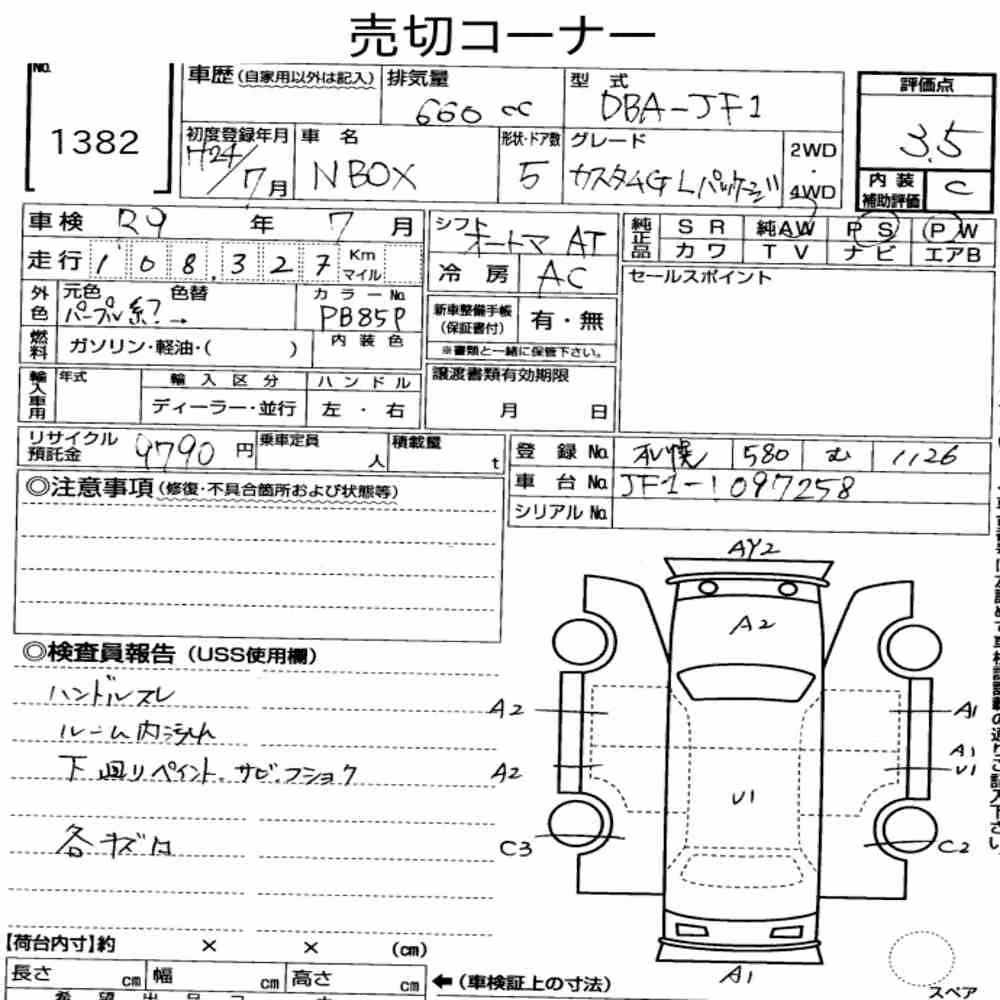 売切コーナー
No.
1382
車歴 (自家用以外は記入)
排気量
660 cc
型 式
DBA-JF1
評価点
3.5
初度登録年月
H24/7月
車 名
N BOX
形状・ドア数
5
グレード
カスタムG Lパッケージ
2WD
・
4WD
内 装
補助評価
C
車検 R9 年 7 月
走行 108,327 Km
マイル
シフト
オートマ AT
冷 房 AC
純正品
SR 純AW PS PW
カワ TV ナビ エアB
セールスポイント
外色
元色 色替
パープル系?→
カラーNo.
PB85P
新車整備手帳
(保証書付)
有・無
※書類と一緒に保管下さい。
燃料
ガソリン・軽油・( )
内装色
輸入車用
年式
輸入区分
ハンドル
ディーラー・並行
左・右
譲渡書類有効期限
月 日
リサイクル
預託金
9790 円
乗車定員
人
積載量
t
登 録 No. 札幌 580 む 1126
車 台 No. JF1-1097258
シリアル No.
◎注意事項 (修復・不具合箇所および状態等)
◎検査員報告 (USS使用欄)
ハンドルスレ
ルーム内汚れ
下回りペイント.サビ.フショク
各キズ凹
AY2
A2
A2
A1
A1
U1
A2
U1
C3
C2
A1
【荷台内寸】約 × × (cm)
長さ cm 幅 cm 高さ cm
←(車検証上の寸法)
スペア